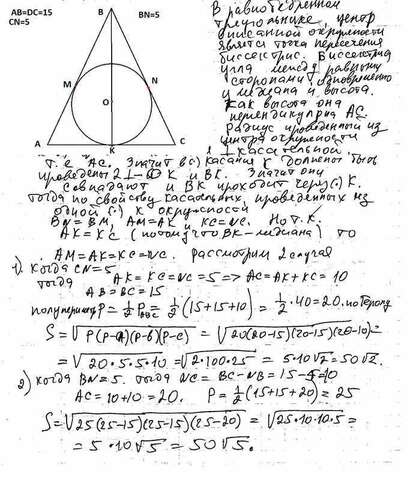 AB=DC=15
CN=5
B
BN=5
M
N
O
A
K
C
В равнобедренном
треугольнике, центр
вписанной окружности
является точка пересечения
биссектрис. Биссектриса
угла между равными
сторонами, одновременно
и медиана и высота.
Как высота она
перпендикулярна AC.
Радиус проведенный из
центра окружности
⊥ касательной
т.е AC. Значит в (·) касания K должны быть
проведены 2 ⊥ OK и BK. Значит они
совпадают и BK проходит через (·) K.
тогда по свойству касательных, проведенных из
одной (·) к окружности
BN=BM, AM=AK и KC=NC. Но т.к.
AK=KC (потому что BK-медиана) то
AM=AK=KC=NC. Рассмотрим 2 случая
1) когда CN=5
тогда AK=KC=NC=5 => AC=AK+KC=10
AB=BC=15
полупериметр P=½P_ABC=½(15+15+10)=½·40=20. по Герону
S=√P(P-a)(P-b)(P-c)=√20(20-15)(20-15)(20-10)=
=√20·5·5·10=√2·100·25=5·10√2=50√2.
2) когда BN=5. тогда NC=BC-NB=15-5=10
AC=10+10=20. P=½(15+15+20)=25
S=√25(25-15)(25-15)(25-20)=√25·10·10·5=
=5·10√5=50√5.